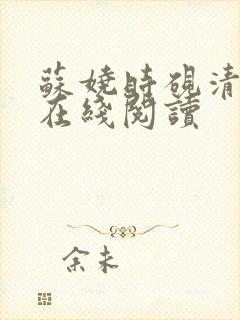 蘇嬈時硯清
在綫閱讀
余未